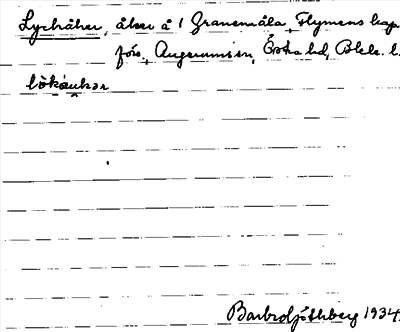 Lyckåker, åker å 1 Granemåla, Flymens kap-
förs., Augerums sn, Östra hd, Blek. l.
lökåukər
Barbro Ljóthberg 1934.